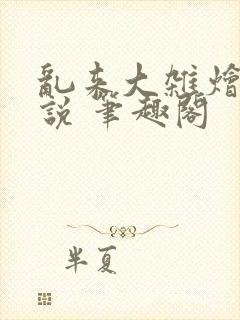 亂来大雜燴
說 筆趣閣
半夏